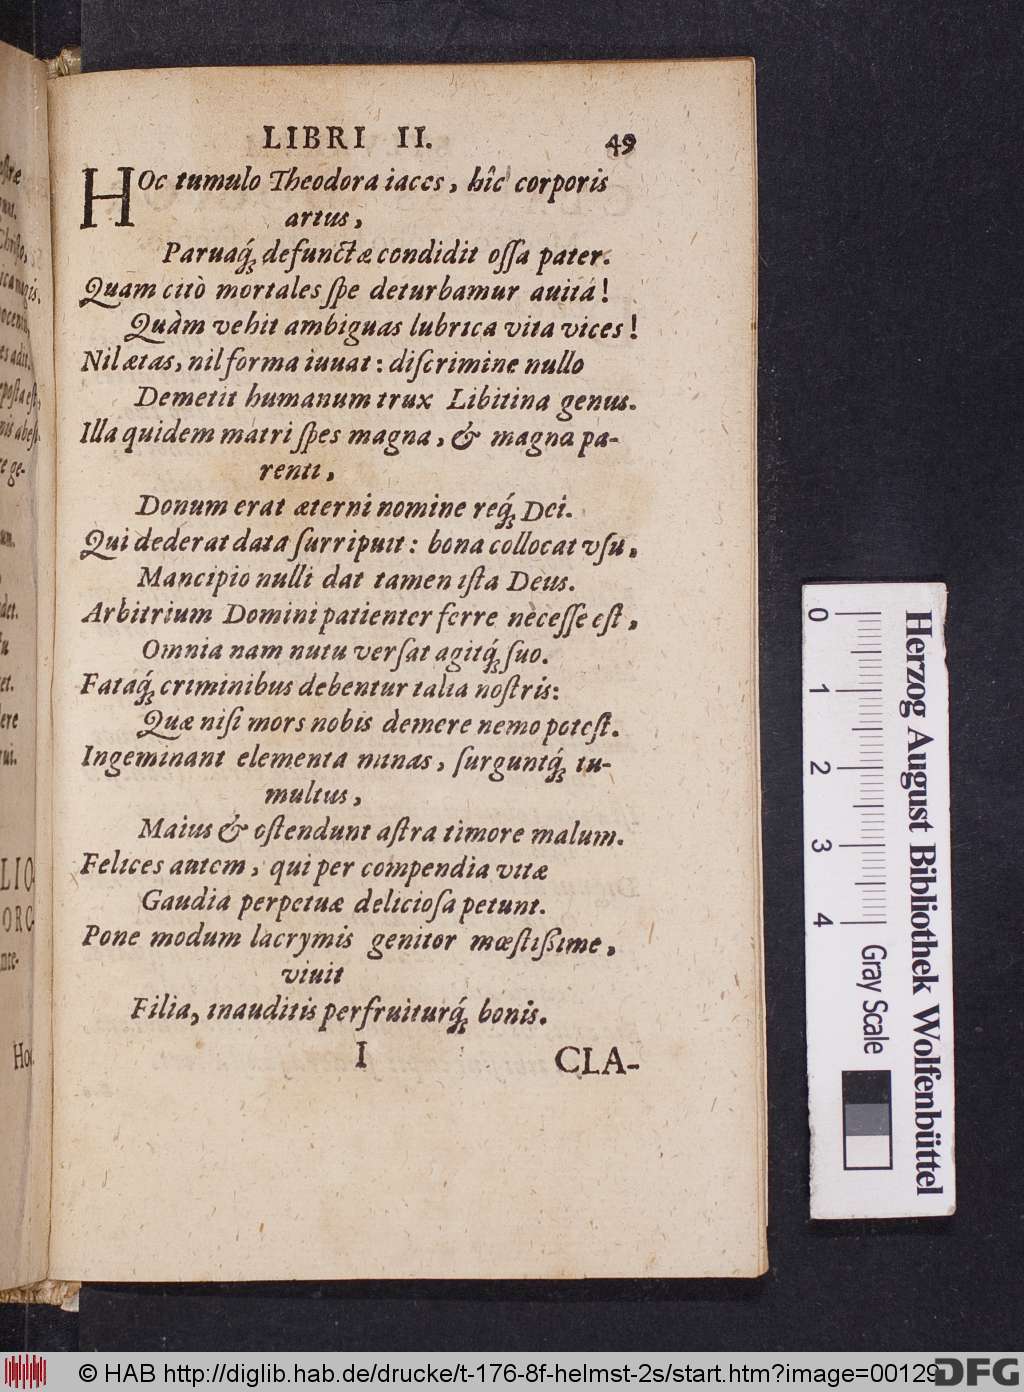 LIBRI II. 49
HOc tumulo Theodora iaces, hîc corporis
artus,
Paruaq́; defunctæ condidit oſſa pater.
Quam citò mortales ſpe deturbamur auitâ!
Quàm vehit ambiguas lubrica vita vices!
Nil ætas, nil forma iuuat: diſcrimine nullo
Demetit humanum trux Libitina genus.
Illa quidem matri ſpes magna, & magna pa-
renti,
Donum erat æterni nomine req́; Dei.
Qui dederat data ſurripuit: bona collocat vſu,
Mancipio nulli dat tamen iſta Deus.
Arbitrium Domini patienter ferre neceſſe eſt,
Omnia nam nutu verſat agitq́; ſuo.
Fataq́; criminibus debentur talia noſtris:
Quæ niſi mors nobis demere nemo poteſt.
Ingeminant elementa minas, ſurguntq́; tu-
multus,
Maius & oſtendunt aſtra timore malum.
Felices autem, qui per compendia vitæ
Gaudia perpetuæ delicioſa petunt.
Pone modum lacrymis genitor mœſtißime,
viuit
Filia, inauditis perfruiturq́; bonis.
I CLA-
Hoc
0 1 2 3 4
Gray Scale
Herzog August Bibliothek Wolfenbüttel
© HAB http://diglib.hab.de/drucke/t-176-8f-helmst-2s/start.htm?image=00129
DFG